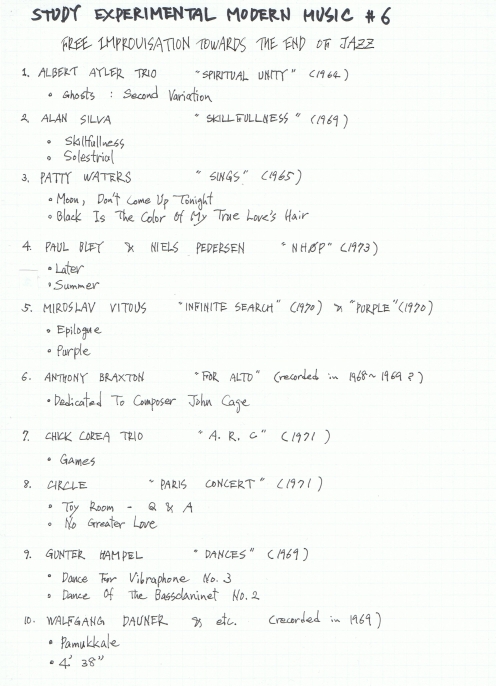 STUDY EXPERIMENTAL MODERN MUSIC #6
FREE IMPROVISATION TOWARDS THE END OF JAZZ
1. ALBERT AYLER TRIO "SPIRITUAL UNITY" (1964)
• Ghosts : Second Variation
2. ALAN SILVA "SKILLFULLNESS" (1969)
• Skillfullness
• Solestrial
3. PATTY WATERS "SINGS" (1965)
• Moon, Don't Come Up Tonight
• Black Is The Color Of My True Love's Hair
4. PAUL BLEY & NIELS PEDERSEN "NHØP" (1973)
• Later
• Summer
5. MIROSLAV VITOUS "INFINITE SEARCH" (1970) & "PURPLE" (1970)
• Epilogue
• Purple
6. ANTHONY BRAXTON "FOR ALTO" (recorded in 1968~1969?)
• Dedicated To Composer John Cage
7. CHICK COREA TRIO "A. R. C" (1971)
• Games
8. CIRCLE "PARIS CONCERT" (1971)
• Toy Room - Q & A
• No Greater Love
9. GUNTER HAMPEL "DANCES" (1969)
• Dance For Vibraphone No. 3
• Dance Of The Bassclarinet No. 2
10. WALFGANG DAUNER & etc. (recorded in 1969)
• Pamukkale
• 4' 38"